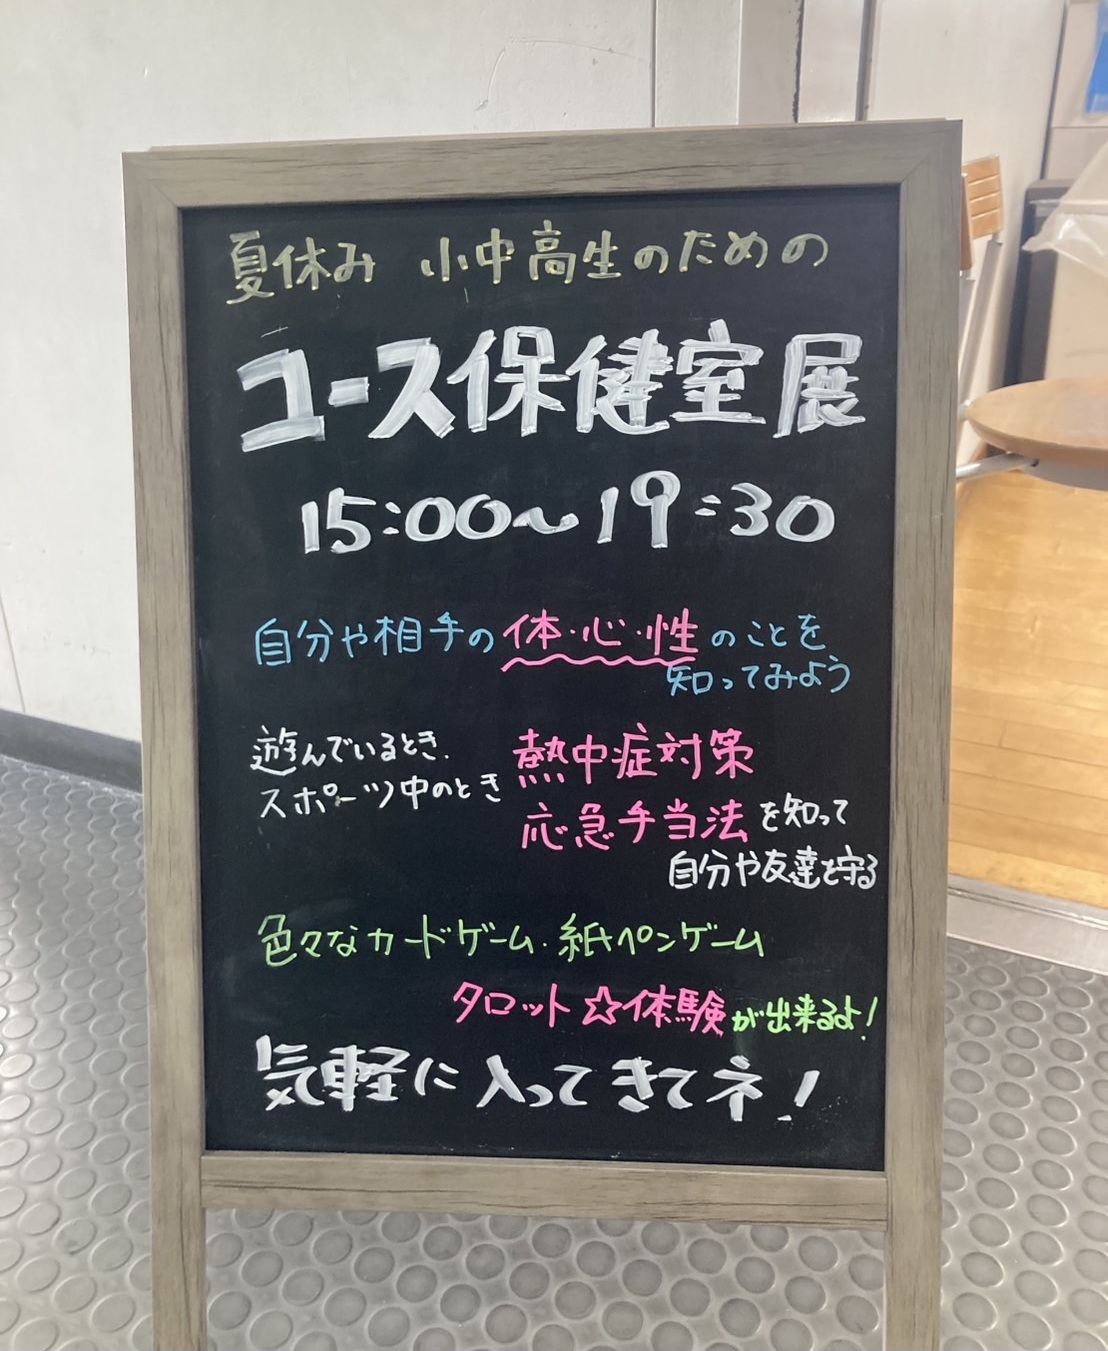 夏休み 小中高生のための
ユース保健室展
15:00〜19:30
自分や相手の体・心・性のことを
知ってみよう
遊んでいるとき、
スポーツ中のとき
熱中症対策
応急手当法を知って
自分や友達を守る
色々なカードゲーム・紙ペンゲーム
タロット☆体験が出来るよ!
気軽に入ってきてネ!